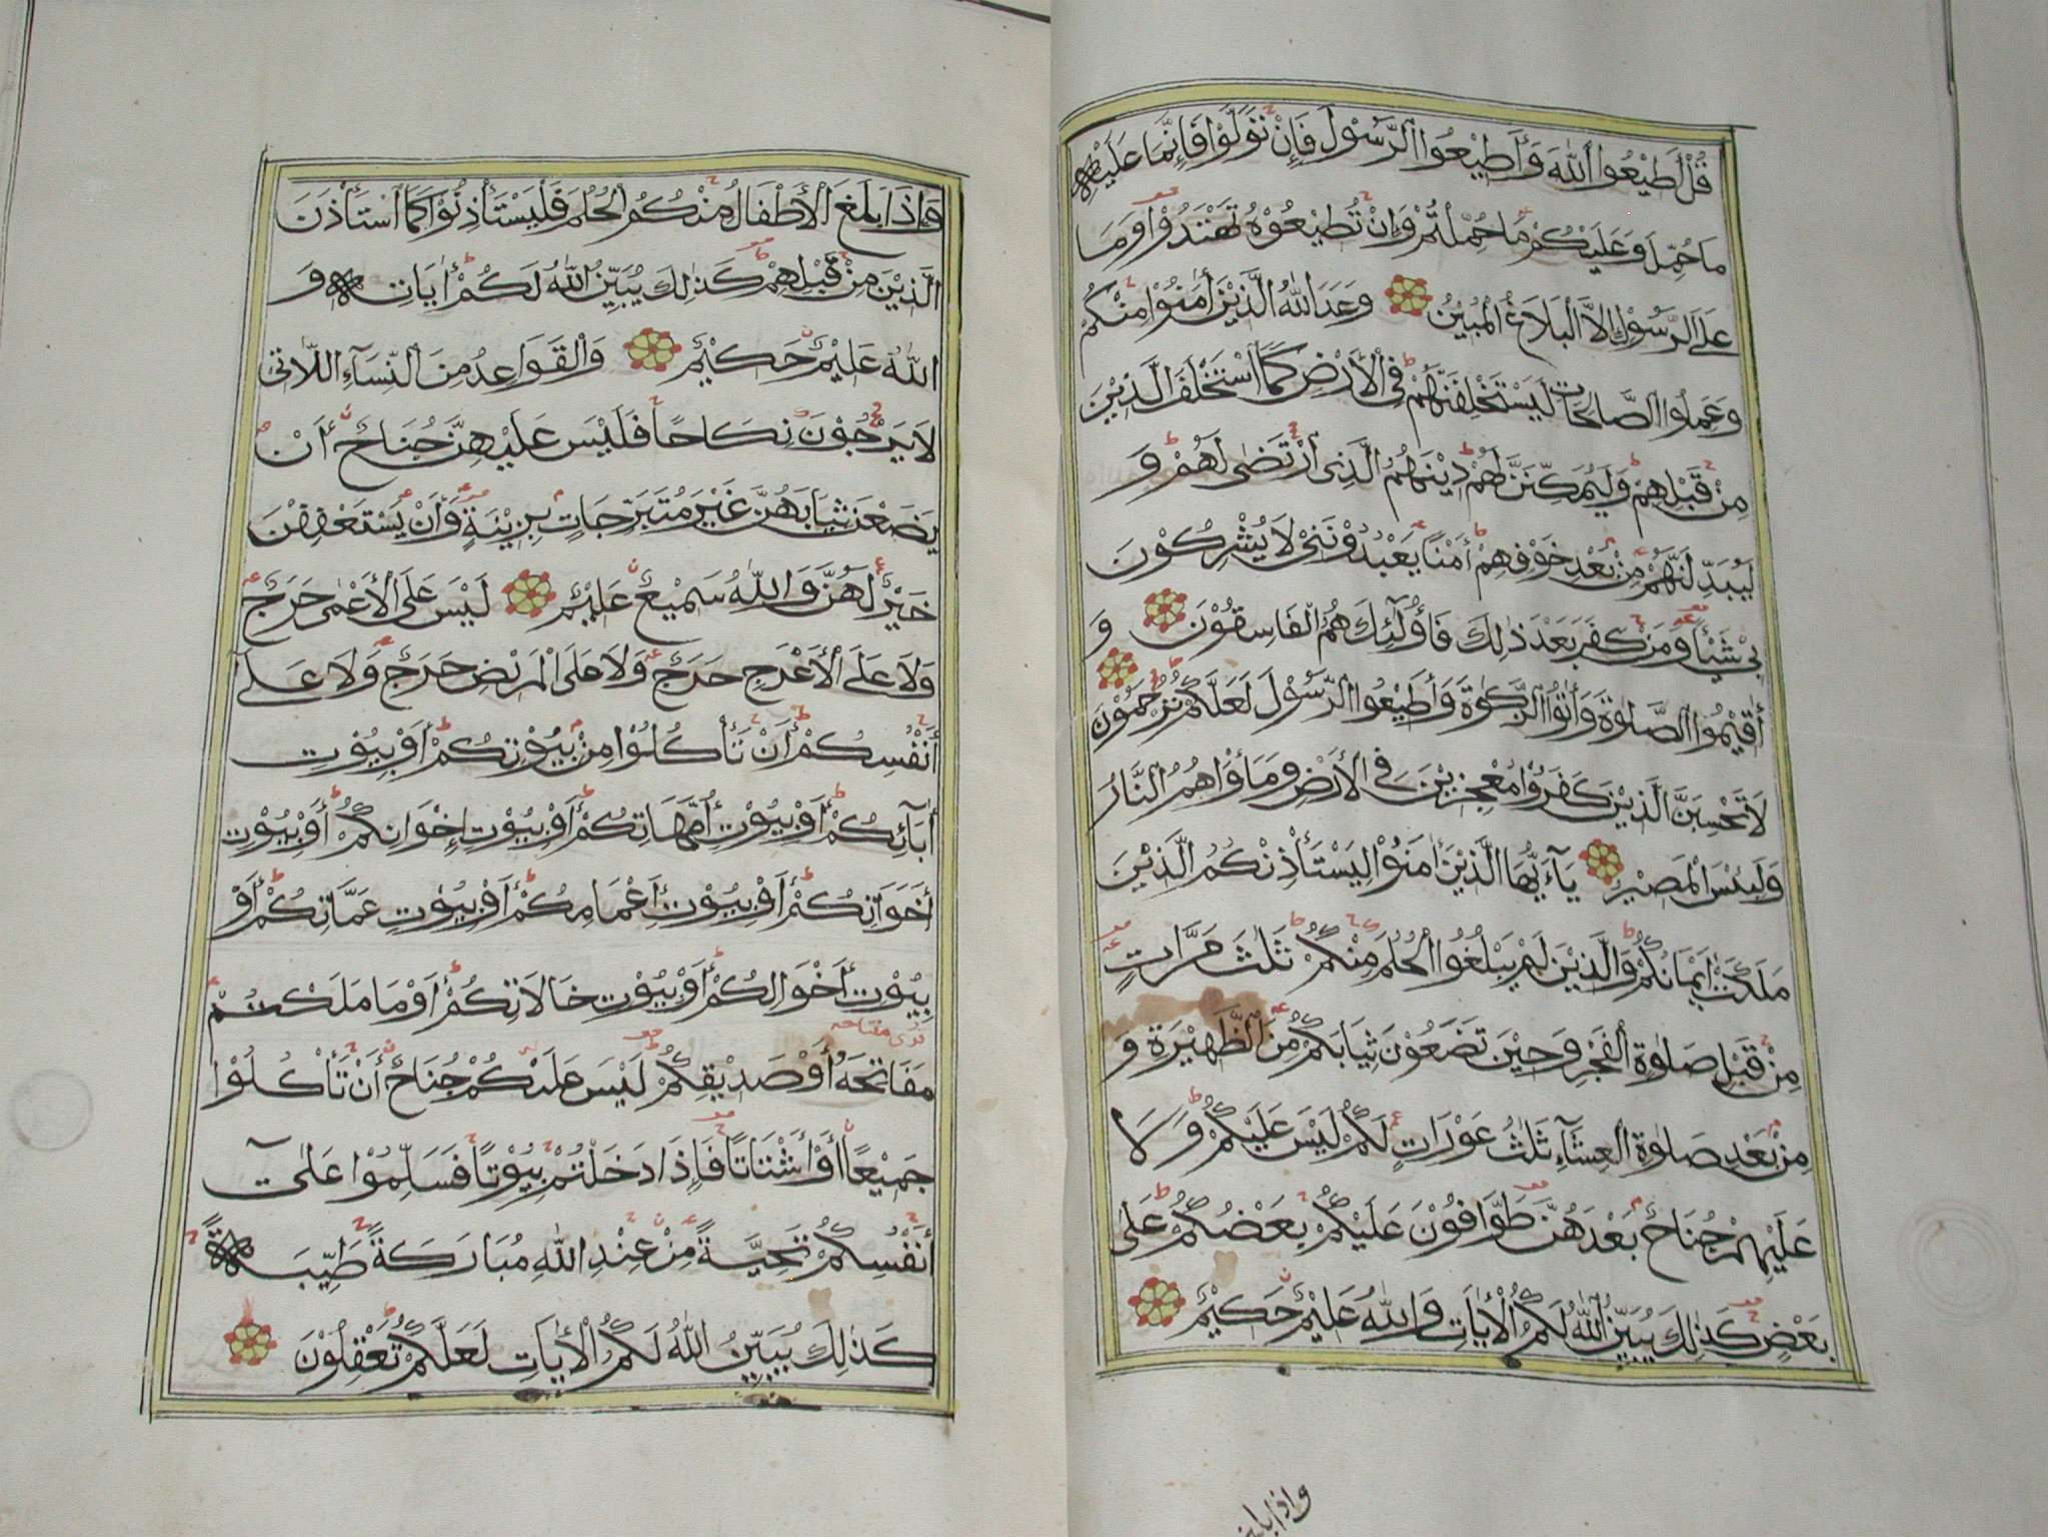 قُلْ أَطِيْعُوا اللّٰهَ وَأَطِيْعُوا الرَّسُوْلَ فَإِنْ تَوَلَّوْا فَإِنَّمَا عَلَيْهِ
مَا حُمِّلَ وَعَلَيْكُمْ مَا حُمِّلْتُمْ وَإِنْ تُطِيْعُوْهُ تَهْتَدُوْا وَمَا
عَلَى الرَّسُوْلِ إِلَّا الْبَلَاغُ الْمُبِيْنُ وَعَدَ اللّٰهُ الَّذِيْنَ أٰمَنُوْا مِنْكُمْ
وَعَمِلُوا الصَّالِحَاتِ لَيَسْتَخْلِفَنَّهُمْ فِي الْأَرْضِ كَمَا اسْتَخْلَفَ الَّذِيْنَ
مِنْ قَبْلِهِمْ وَلَيُمَكِّنَنَّ لَهُمْ دِيْنَهُمُ الَّذِى ارْتَضٰى لَهُمْ وَ
لَيُبَدِّلَنَّهُمْ مِنْ بَعْدِ خَوْفِهِمْ أَمْنًا يَعْبُدُوْنَنِيْ لَا يُشْرِكُوْنَ
بِيْ شَيْئًا وَمَنْ كَفَرَ بَعْدَ ذٰلِكَ فَأُولٰئِكَ هُمُ الْفَاسِقُوْنَ وَ
أَقِيْمُوا الصَّلٰوةَ وَأٰتُوا الزَّكٰوةَ وَأَطِيْعُوا الرَّسُوْلَ لَعَلَّكُمْ تُرْحَمُوْنَ
لَا تَحْسَبَنَّ الَّذِيْنَ كَفَرُوْا مُعْجِزِيْنَ فِي الْأَرْضِ وَمَأْوَاهُمُ النَّارُ
وَلَبِئْسَ الْمَصِيْرُ يَآءَيُّهَا الَّذِيْنَ أٰمَنُوْا لِيَسْتَأْذِنْكُمُ الَّذِيْنَ
مَلَكَتْ أَيْمَانُكُمْ وَالَّذِيْنَ لَمْ يَبْلُغُوا الْحُلُمَ مِنْكُمْ ثَلٰثَ مَرَّاتٍ
مِنْ قَبْلِ صَلٰوةِ الْفَجْرِ وَحِيْنَ تَضَعُوْنَ ثِيَابَكُمْ مِنَ الظَّهِيْرَةِ وَ
مِنْ بَعْدِ صَلٰوةِ الْعِشَآءِ ثَلٰثُ عَوْرَاتٍ لَكُمْ لَيْسَ عَلَيْكُمْ وَلَا
عَلَيْهِمْ جُنَاحٌ بَعْدَهُنَّ طَوَّافُوْنَ عَلَيْكُمْ بَعْضُكُمْ عَلٰى
بَعْضٍ كَذٰلِكَ يُبَيِّنُ اللّٰهُ لَكُمُ الْأٰيَاتِ وَاللّٰهُ عَلِيْمٌ حَكِيْمٌ
وَإِذَا بَلَغَ الْأَطْفَالُ مِنْكُمُ الْحُلُمَ فَلْيَسْتَأْذِنُوْا كَمَا اسْتَأْذَنَ
الَّذِيْنَ مِنْ قَبْلِهِمْ كَذٰلِكَ يُبَيِّنُ اللّٰهُ لَكُمْ أٰيَاتِهِ وَ
اللّٰهُ عَلِيْمٌ حَكِيْمٌ وَالْقَوَاعِدُ مِنَ النِّسَآءِ اللَّاتِى
لَا يَرْجُوْنَ نِكَاحًا فَلَيْسَ عَلَيْهِنَّ جُنَاحٌ أَنْ
يَضَعْنَ ثِيَابَهُنَّ غَيْرَ مُتَبَرِّجَاتٍ بِزِيْنَةٍ وَأَنْ يَسْتَعْفِفْنَ
خَيْرٌ لَهُنَّ وَاللّٰهُ سَمِيْعٌ عَلِيْمٌ لَيْسَ عَلَى الْأَعْمٰى حَرَجٌ
وَلَا عَلَى الْأَعْرَجِ حَرَجٌ وَلَا عَلَى الْمَرِيْضِ حَرَجٌ وَلَا عَلٰى
أَنْفُسِكُمْ أَنْ تَأْكُلُوْا مِنْ بُيُوْتِكُمْ أَوْ بُيُوْتِ
أٰبَآئِكُمْ أَوْ بُيُوْتِ أُمَّهَاتِكُمْ أَوْ بُيُوْتِ إِخْوَانِكُمْ أَوْ بُيُوْتِ
أَخَوَاتِكُمْ أَوْ بُيُوْتِ أَعْمَامِكُمْ أَوْ بُيُوْتِ عَمَّاتِكُمْ أَوْ
بُيُوْتِ أَخْوَالِكُمْ أَوْ بُيُوْتِ خَالَاتِكُمْ أَوْ مَا مَلَكْتُمْ
مَفَاتِحَهُ أَوْ صَدِيْقِكُمْ لَيْسَ عَلَيْكُمْ جُنَاحٌ أَنْ تَأْكُلُوْا
جَمِيْعًا أَوْ أَشْتَاتًا فَإِذَا دَخَلْتُمْ بُيُوْتًا فَسَلِّمُوْا عَلٰى
أَنْفُسِكُمْ تَحِيَّةً مِنْ عِنْدِ اللّٰهِ مُبَارَكَةً طَيِّبَةً
كَذٰلِكَ يُبَيِّنُ اللّٰهُ لَكُمُ الْأٰيَاتِ لَعَلَّكُمْ تَعْقِلُوْنَ